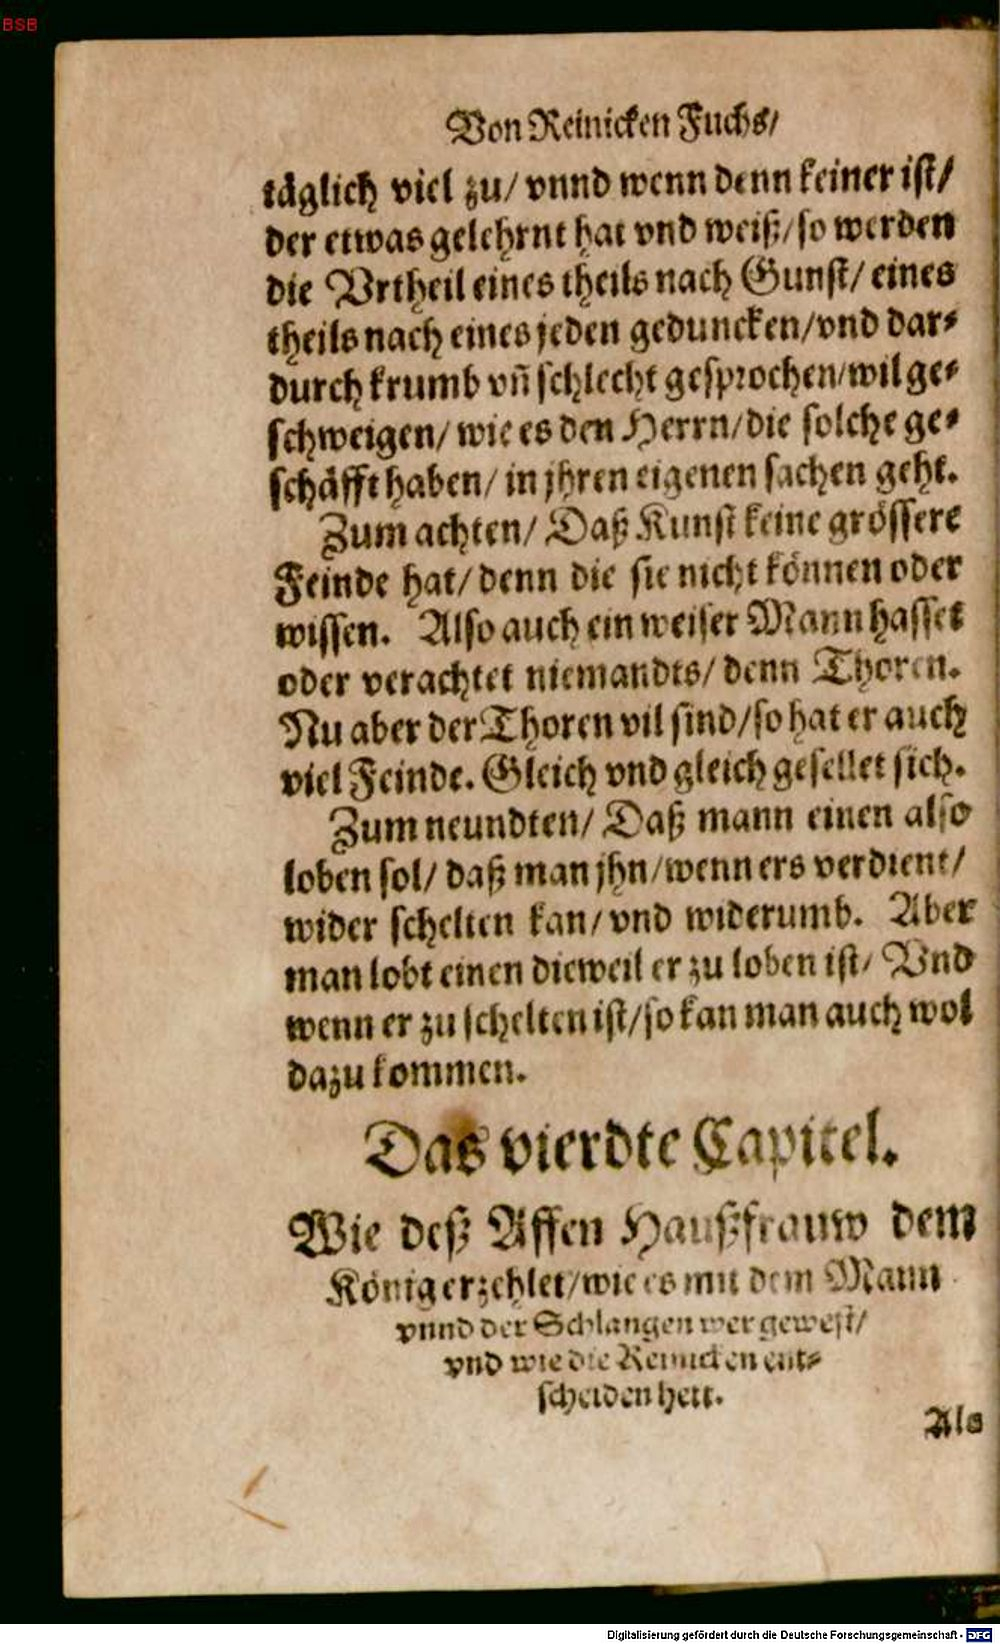 BSB
Von Reinicken Fuchs/
täglich viel zu/ vnnd wenn denn keiner ist/
der etwas gelehrnt hat vnd weiß/ so werden
die Vrtheil eines theils nach Gunst/ eines
theils nach eines jeden geduncken/ vnd dar⸗
durch krumb vñ schlecht gesprochen/ wil ge⸗
schweigen/ wie es den Herrn/ die solche ge⸗
schäfft haben/ in jhren eigenen sachen geht.
Zum achten/ Daß Kunst keine grössere
Feinde hat/ denn die sie nicht können oder
wissen. Also auch ein weiser Mann hasset
oder verachtet niemandts/ denn Thoren.
Nu aber der Thoren vil sind/ so hat er auch
viel Feinde. Gleich vnd gleich gesellet sich.
Zum neundten/ Daß mann einen also
loben sol/ daß man jhn/ wenn ers verdient/
wider schelten kan/ vnd widerumb. Aber
man lobt einen dieweil er zu loben ist/ Vnd
wenn er zu schelten ist/ so kan man auch wol
dazu kommen.
Das vierdte Capitel.
Wie deß Affen Haußfrauw dem
König erzehlet/ wie es mit dem Mann
vnnd der Schlangen wer gewest/
vnd wie die Reinicken ent⸗
scheiden hett.
Als
Digitalisierung gefördert durch die Deutsche Forschungsgemeinschaft - DFG